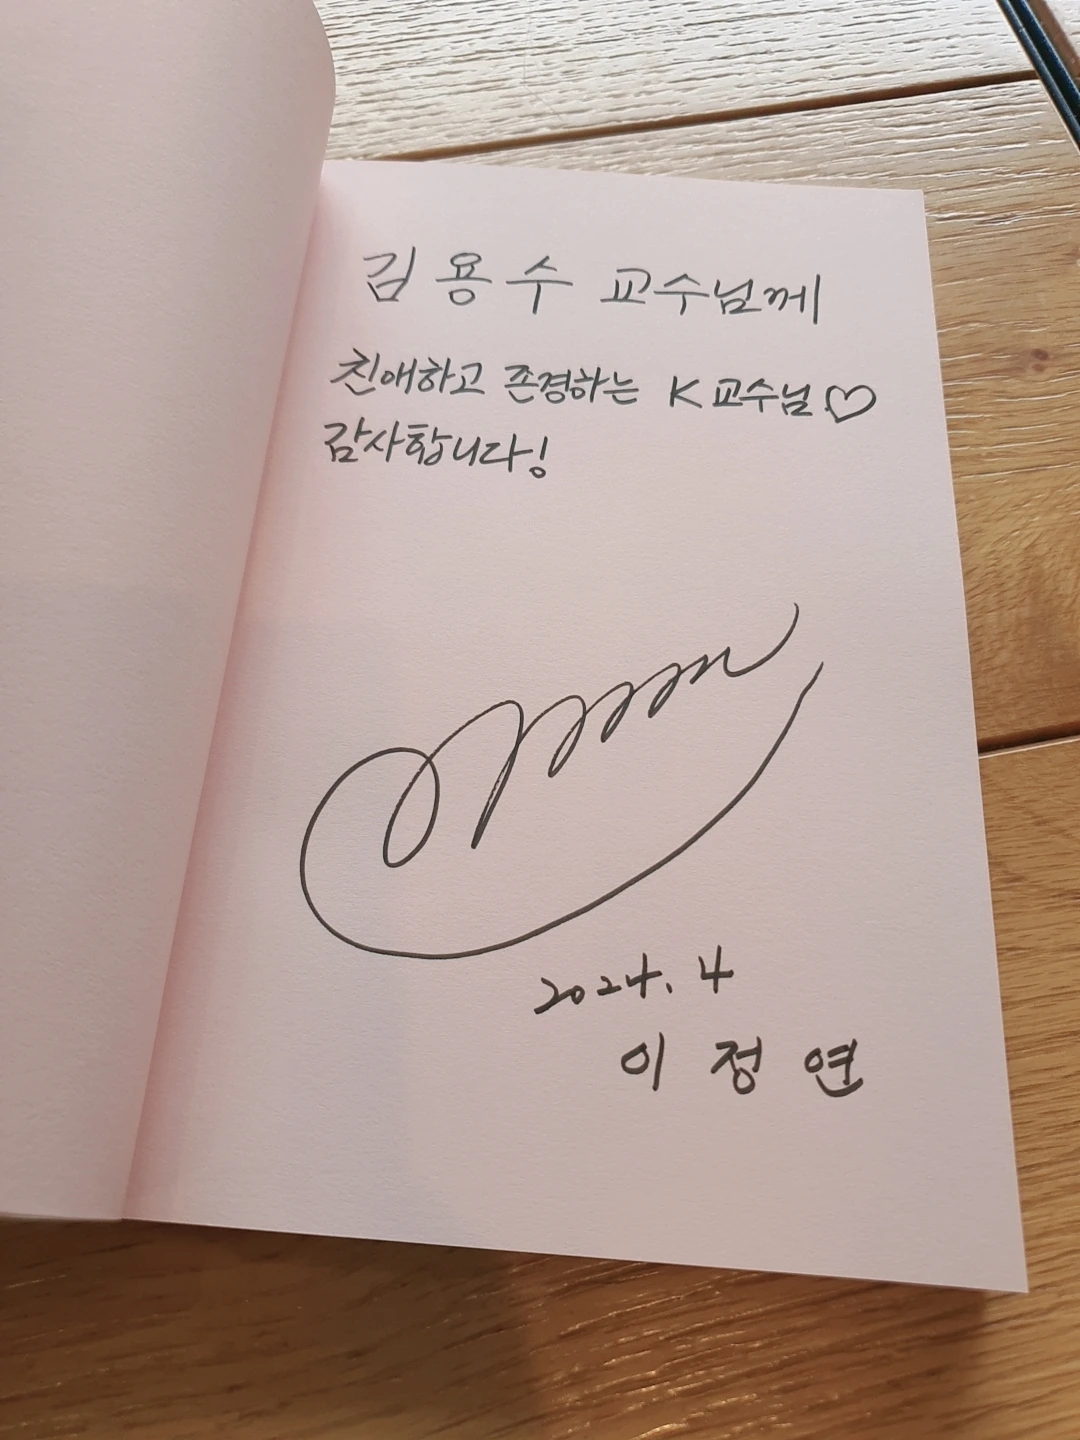 김용수 교수님께
친애하고 존경하는 K교수님♡
감사합니다!
2024. 4
이정연